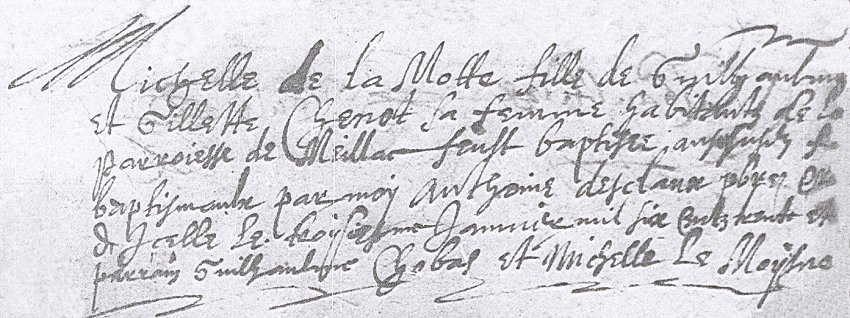 Michelle de la Motte fille de Guilhaulme
et Gillette Chenot sa femme habitants de la
parroiesse de Meillac feust baptisee
baptismaulx par moy Anthoine desclaux pbre
d Icelle le troysiesme Janvier mil six centz trente et
parrain Guilhaulme Chobas et Michelle le Moysne